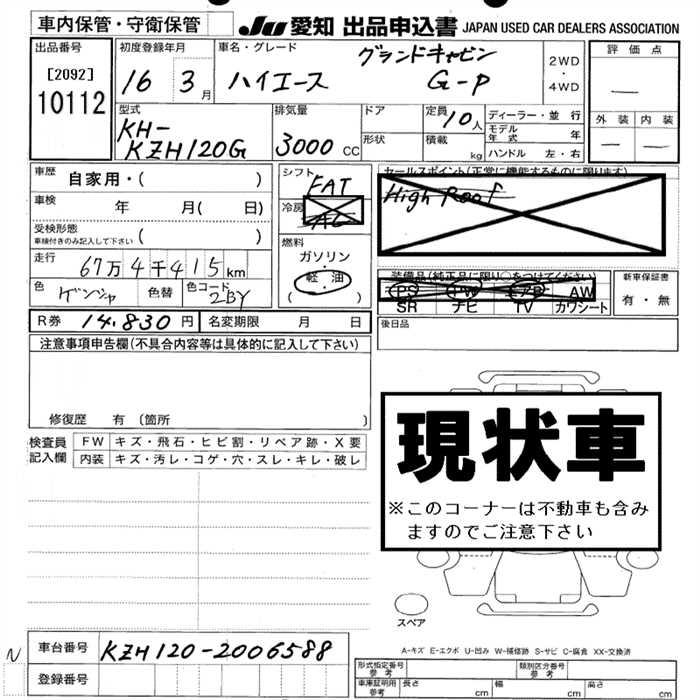 車内保管・守衛保管
JU 愛知 出品申込書 JAPAN USED CAR DEALERS ASSOCIATION
出品番号
[2092]
10112
初度登録年月
16 3 月
車名・グレード
グランドキャビン
ハイエース G-P
2WD
・
4WD
評価点
—
外装 内装
— —
型式
KH-
KZH120G
排気量
3000 CC
ドア
形状
定員 10人
積載 kg
ディーラー・並行
モデル年式 年
ハンドル 左・右
車歴 自家用・( )
車検 年 月( 日)
受検形態
車検付きのみ記入して下さい ( )
走行 67万4千415km
色 ゲンジャ 色替 色コード 2BY
シフト FAT
冷房 AC
燃料
ガソリン・
軽・油
( )
セールスポイント(正常に機能するものに限ります)
High Roof
装備品(純正品に限り○をつけてください)
PS PW エアB AW
SR ナビ TV カワシート
新車保証書
有・無
R券 14,830円 名変期限 月 日
後日品
注意事項申告欄(不具合内容等は具体的に記入して下さい)
修復歴 有 〔箇所 〕
検査員記入欄
FW キズ・飛石・ヒビ割・リペア跡・X要
内装 キズ・汚レ・コゲ・穴・スレ・キレ・破レ
現状車
※このコーナーは不動車も含み
ますのでご注意下さい
スペア
A-キズ E-エクボ U-凹み W-補修跡 S-サビ C-腐食 XX-交換済
N
車台番号 KZH120-2006588
登録番号
形式指定番号
参考
類別区分番号
参考
車庫証明用
参考
長さ cm 幅 cm 高さ cm